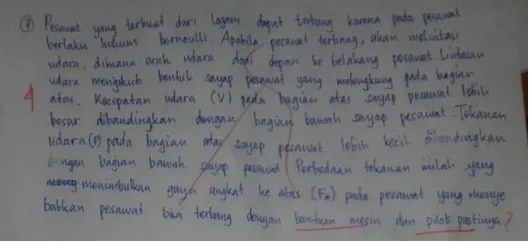 ⑧ Pesawat yang terbuat dari logam dapat terbang karena pada pesawat
berlaku hukum bernoulli. Apabila pesawat terbang, akan melintasi
udara, dimana arah udara dari depan ke belakang pesawat. Lintasan
udara mengikuti bentuk sayap pesawat yang melengkung pada bagian
4 atas. Kecepatan udara (V) pada bagian atas sayap pesawat lebih
besar dibandingkan dengan bagian bawah sayap pesawat. Tekanan
udara (P) pada bagian atas sayap pesawat lebih kecil dibandingkan
dengan bagian bawah sayap pesawat. Perbedaan tekanan inilah yang
menimbulkan gaya angkat ke atas (Fa) pada pesawat yang menye
babkan pesawat bisa terbang dengan bantuan mesin dan pilot pastinya?